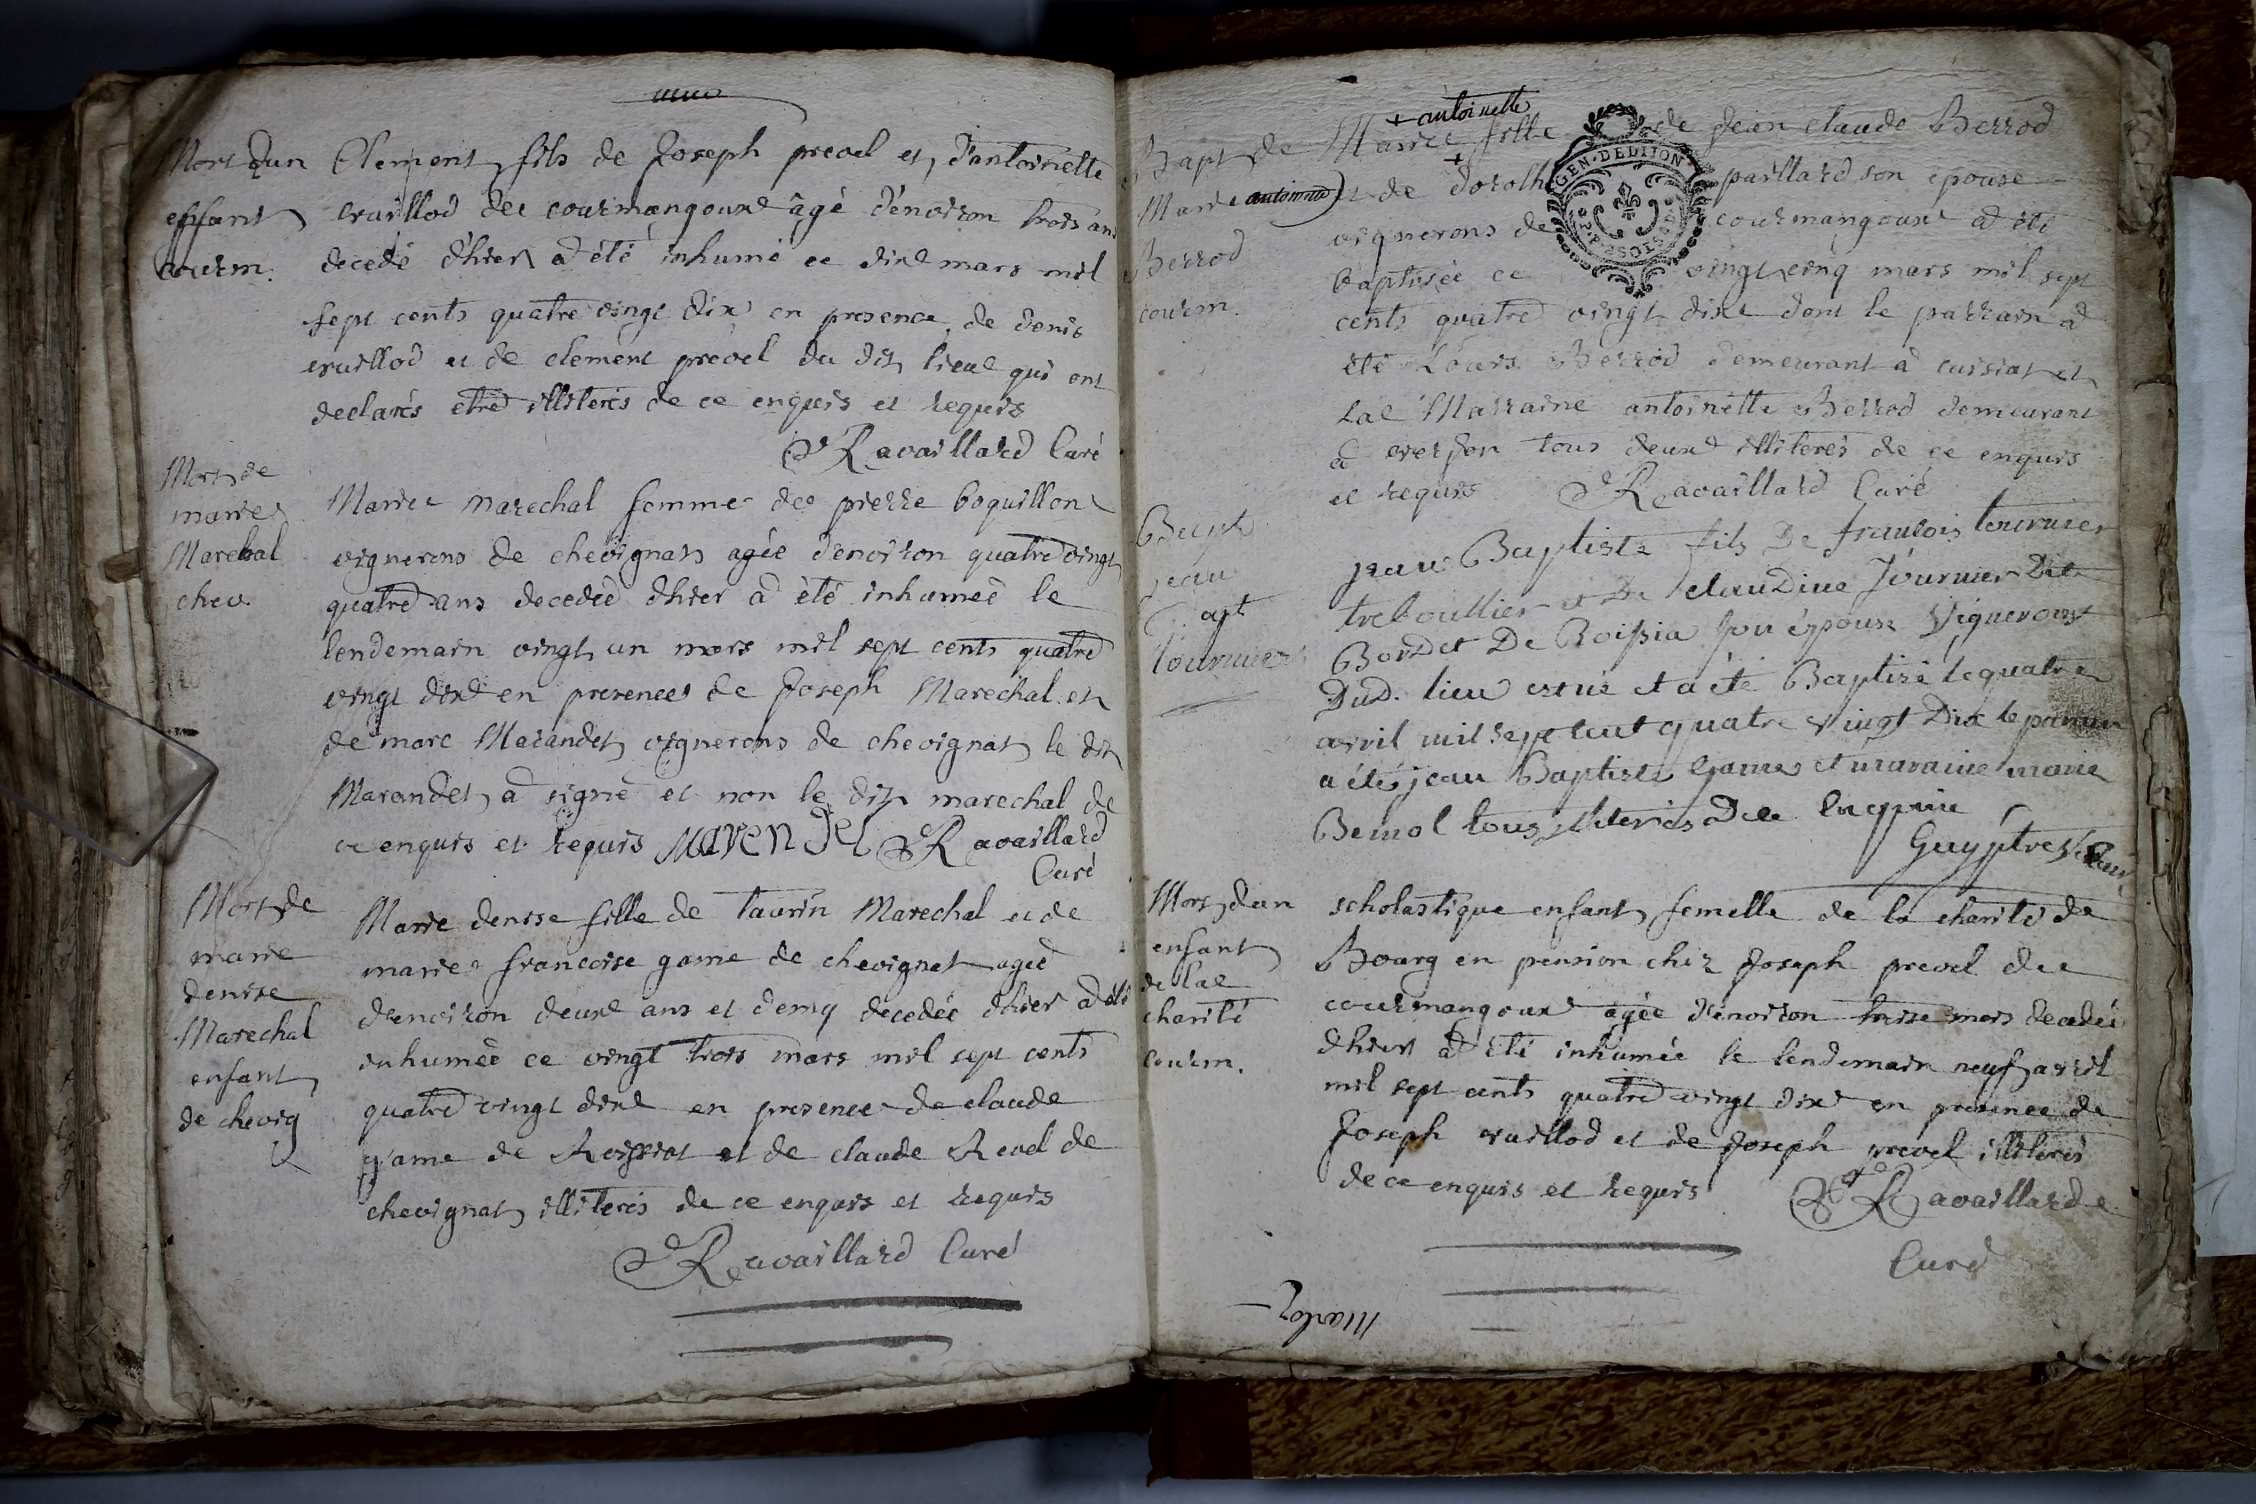 Mort d'un
enfant
courm.
Clement fils de Joseph prevel et d'antoinette
cruillod de courmangoux âgé d'énviron trois ans
decedé d'hier a été inhumé ce dixe mars mil
sept cents quatre vingt dix en presence de denis
cruillod et de clement prevel du dit lieue qui ont
declarés etre illiterés de ce enquis et requis
Ravaillard Curé
Mort de
marie
Marechal
chev.
Marie marechal femme de pierre boquillon
vignerons de chevignat agée d'environ quatre vingt
quatre ans decedée d'hier a été inhumée le
lendemain vingt un mars mil sept cents quatre
vingt dixe en presence de Joseph Marechal et
de marc Marandet vignerons de chevignat le dit
Marandet a signé et non le dit marechal de
ce enquis et requis Marendet Ravaillard
Curé
Mort de
marie
denise
Marechal
enfant
de chevig
Marie denise fille de taurin Marechal et de
marie francoise game de chevignat agée
d'environ deuxe ans et demy decedée d'hier a été
inhumée ce vingt trois mars mil sept cents
quatre vingt dixe en presence de claude
game de Roissiat et de claude Revel de
chevignat illiterés de ce enquis et requis
Ravaillard Curé
Bapt de
Marie antoinette
Berrod
courm.
+ antoinette
Marie + fille de Jean claude Berrod
et de doroth paillard son epouse
vignerons de courmangoux a été
baptisée ce vingt cinq mars mil sept
cents quatre vingt dixe dont le parrain a
été Louis Berrod demeurant a cuisiat et
la Marraine antoinette Berrod demeurant
a verjon tous deuxe illiterés de ce enquis
et requis Ravaillard Curé
GEN. DE DIJON
Bapt
jean
Bapt
tournier
jean Baptiste fils de francois tournier
treboullier et De claudine Tournier Dit
Bordet De Roissia son épouse Vignerons
Dud. lieu est né et a été Baptisé le quatre
avril mil sept cent quatre Vingt Dix le parrain
a été jean Baptiste Game et maraine marie
Bemol tous illiteries De ce Enquis
Guy ptre Vicaire
Mort d'un
enfant
de la
charité
courm.
scholastique enfant femelle de la charité de
Bourg en pension chez Joseph prevel de
courmangoux agée d'environ treize mois decedée
d'hier a été inhumée le lendemain neuf avril
mil sept cents quatre vingt dixe en presence de
Joseph cruillod et de Joseph prevel illiterés
de ce enquis et requis Ravaillard
Curé